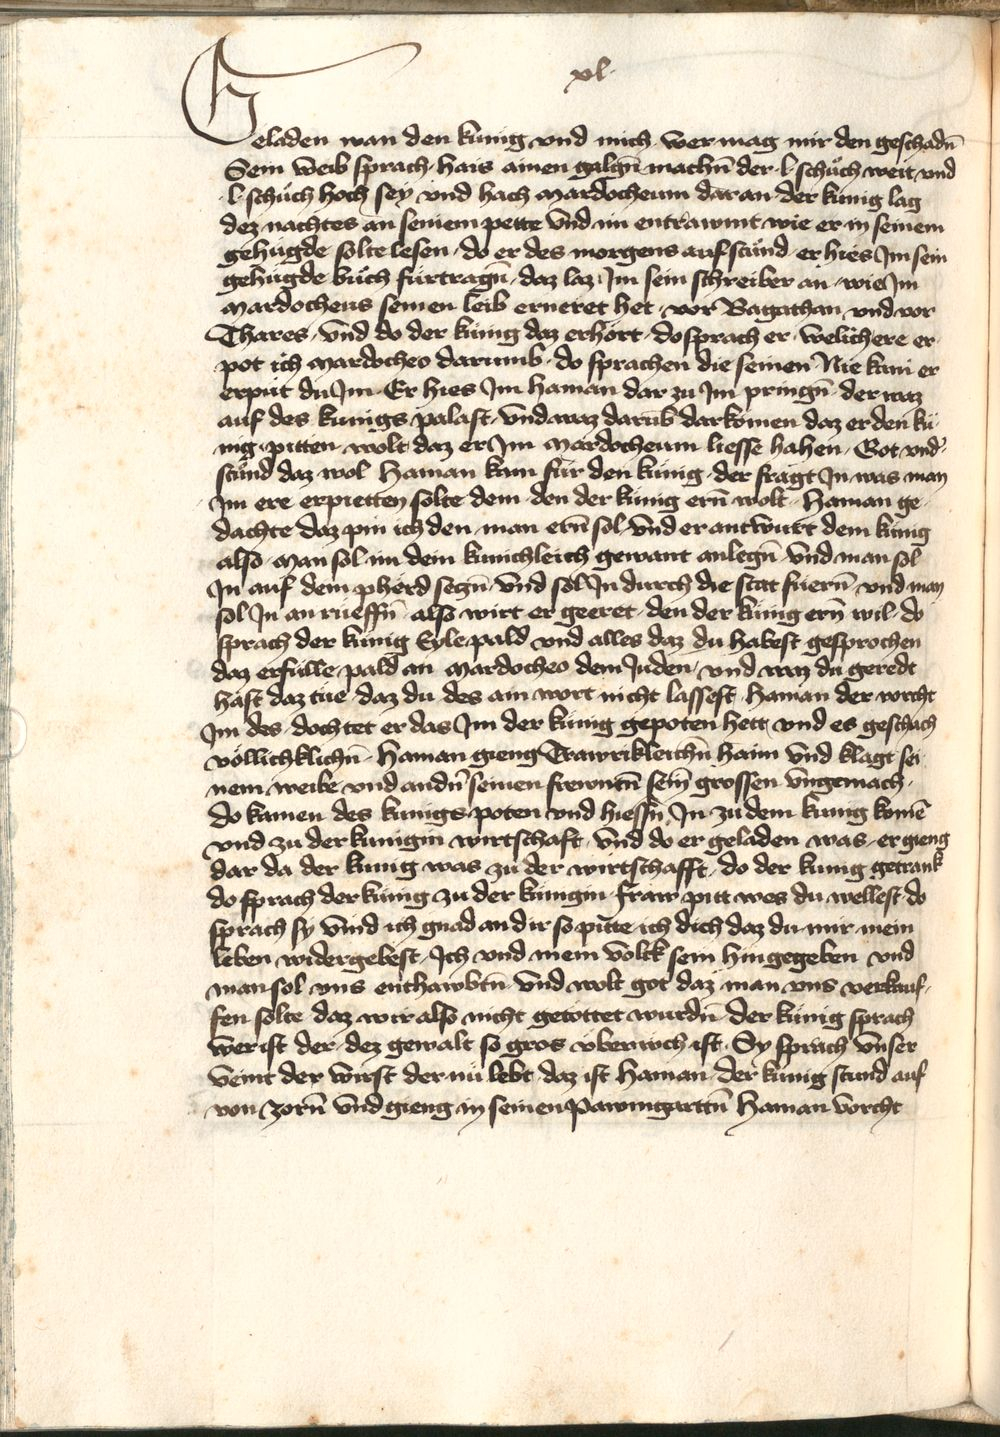 xl.
Geladen wan den kunig vnd mich. wer mag mir den geschadn̄
Sein weib sprach. hais ainen galgn̄ machn̄ der .l. schůch weit vnd
.l. schůch hoch sey vnd hach Mardocheum daran. der kunig lag
dez nachtes an seinem pette vnd im entrawmt wie er in seinem
gehugde solte lesen. do er des morgens aufstůnd. er hies Im sein
gehugde bůch furtragn̄. daz laz Im sein schreiber an. wie Im
Mardocheus seinen leib erneret het. vor Bagathan vnd vor
Thares. vnd do der kunig daz erhort. do sprach er. welich ere er
pot ich Mardocheo darumb. do sprachen die seinen Nie kain er
erpůt du Im. Er hies Im haman dar zu Im pringn̄. der waz
auf des kunigs palast. vnd waz darūb darkomen daz er den ku
nig pitten wolt daz er Im Mardocheum liesse hahen. Got vnd'
stůnd daz wol. Haman kam fur den kunig. der fragt In was man
Im ere erpietten solte dem den der kunig ern̄ wolt. Haman ge
dachte daz pin ich den man ern̄ sol. vnd er antwurt dem kunig
also. Man sol im dem kunichleich gewant anlegn̄. vnd man sol
In auf dem pherd seczn̄. vnd sol In durch die stat fuern̄. vnd man
sol In an rueffn̄. also wirt er geeret. den der kunig ern̄ wil. do
sprach der kunig Eyle pald vnd alles daz du habest gesprochen
daz erfulle pald an Mardocheo dem Juden. vnd waz du geredt
hast daz tue. daz du des ain wort nicht lassest. Haman der vorcht
Im des. dochtet er das Im der kunig gepoten hett vnd es geschach
vollichklichn̄. Haman gieng Trawrikleichn̄ haim vnd klagt sei
nem weibe vnd andn̄ seinen frewntn̄ sein̄ grossen vngemach.
do kamen des kunigs poten vnd hiessn̄ In zu dem kunig komē
vnd zu der kunigin wirtschaft. vnd do er geladen was. er gieng
dar da der kunig was zu der wirtschafft. do der kunig getrank
do sprach der kunig zu der kunigin. fraw pitt wes du wellest. do
sprach sy vind ich gnad an dir so pitte ich dich daz du mir mein
leben widergebest. Ich vnd mein volck sein hingegeben vnd
man sol vns enthawbtn̄. vnd wolt got daz man vns verkauf
fen solte daz wir also nicht getottet wurdn̄. der kunig sprach
wer ist der. dez gewalt so gros vber euch ist. Sy sprach vnser
veint der wirst der nu lebt daz ist Haman. der kunig stund auf
von zorn̄ vnd gieng in seinen pawmgarttn̄ Haman vorcht